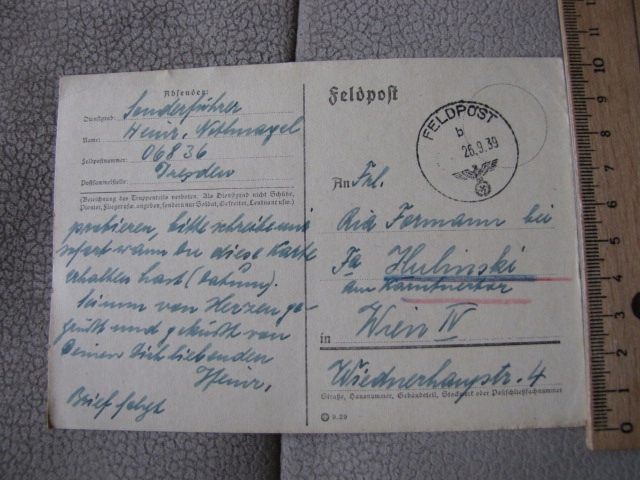 Absender:
Dienstgrad: Sonderführer
Name: Heinr. Nothnagel
Feldpostnummer: 06836
Postsammelstelle: Dresden
(Bezeichnung des Truppenteils verboten. Als Dienstgrad nicht Schütze,
Pionier, Flieger usw. angeben, sondern nur Soldat, Gefreiter, Leutnant usw.)
probieren, bitte schreibe mir
sofort wann Du diese Karte
erhalten hast (Datum).
Sei nun von Herzen ge-
grüßt und geküßt von
Deinem Dich liebenden
Heinr.
Brief folgt
Feldpost
FELDPOST
b
26.9.39
An Frl.
Ria Formann bei
Fa Hulinski
am Kärntnertor
in Wien IV
Wiednerhauptstr. 4
Straße, Hausnummer, Gebäudeteil, Stockwerk oder Postschließfachnummer
9.39
11
10
9
8
7
6
5
4
3
2
1
0